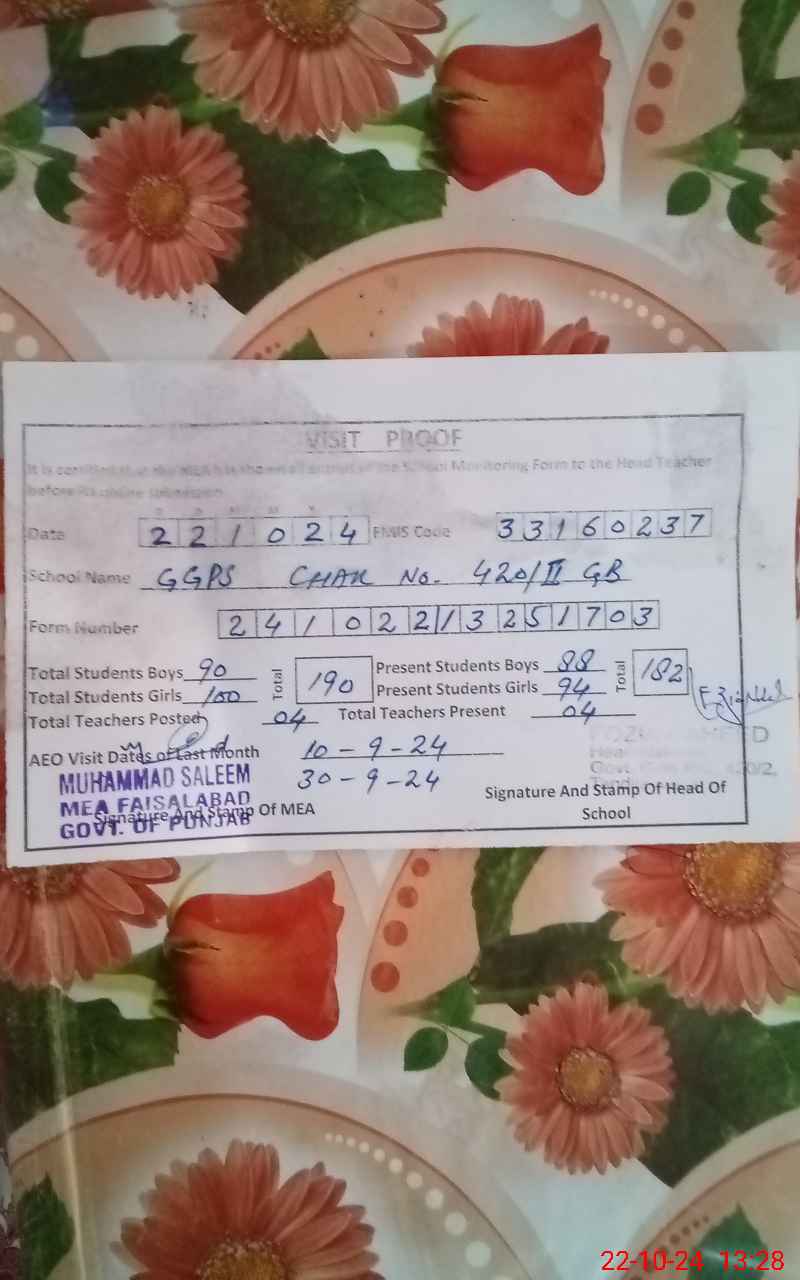 VISIT PROOF
It is certified that the MEA has shown all entries of the School Monitoring Form to the Head Teacher
before its online submission
Date 2 2 1 0 2 4 EMIS Code 3 3 1 6 0 2 3 7
School Name GGPS CHAK No. 420/II GB
Form Number 2 4 1 0 2 2 1 3 2 5 1 7 0 3
Total Students Boys 90 Total 190 Present Students Boys 88 Total 182
Total Students Girls 100 Present Students Girls 94
Total Teachers Posted 04 Total Teachers Present 04
AEO Visit Dates of Last Month 10-9-24
30-9-24
MUHAMMAD SALEEM
MEA FAISALABAD
GOVT. OF PUNJAB
Signature And Stamp Of MEA
Signature And Stamp Of Head Of
School
22-10-24 13:28